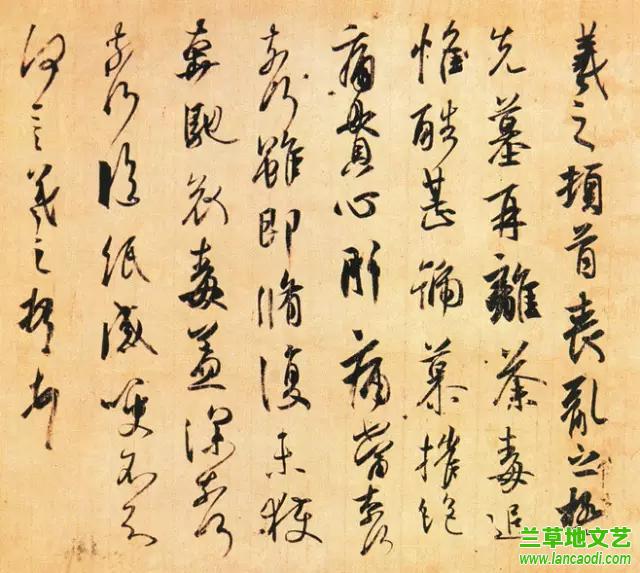 羲之頓首喪亂之極
先墓再離荼毒追
惟酷甚號慕摧絕
痛貫心肝痛當奈何
奈何雖即脩復未獲
奔馳哀毒益深奈何
奈何臨紙感哽不知
何言羲之頓首頓首
兰草地文艺
www.lancaodi.com